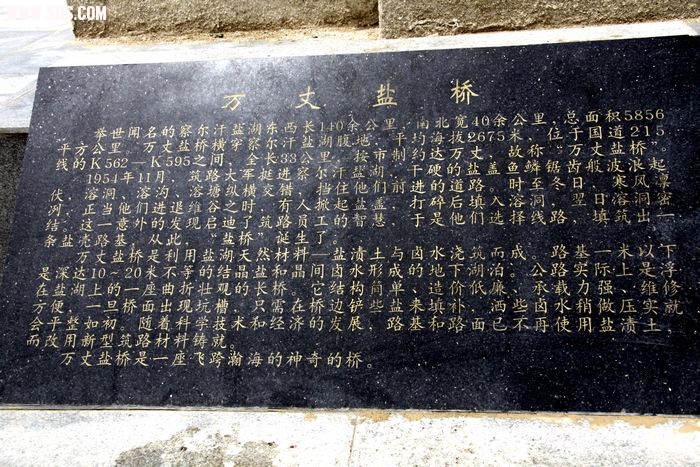 万丈盐桥
举世闻名的察尔汗盐湖东西长140余公里，南北宽40余公里，总面积5856
平方公里，万丈盐桥横穿察尔汗盐湖腹地，平均海拔2675米，位于国道215
线的K562—K595之间，全长33公里，按市制约达万丈，故称“万丈盐桥”。
1954年11月，筑路大军挺进察尔汗，干硬的盐盖鱼鳞锯齿般波浪起
伏，溶洞、溶沟、溶塘纵横交错，挡住他们前进的道路。时至冬日，寒风凛
冽，正当他们进退维谷之时，有人掀起盐盖，打碎后填入溶洞，翌日溶洞密
结。这一意外的发现启迪了筑路员工的智慧，于是他们选择线路，填筑出一
条盐壳路基，从此，“盐桥”诞生了。
万丈盐桥是利用盐湖天然材料—盐渍土与卤水浇筑而成。路基一米以下
是深达10～20米不等的结晶盐和晶间卤水形成的地下湖泊。公路实际上是浮
在盐湖上的一座曲折壮观的长桥，它结构简单、造价低廉、承载力强、维修
方便，一旦桥面出现坑槽，只需在桥边铲些盐来填补，洒些卤水稍做压实就
会平整如初。随着科学技术和经济的发展，路基和路面已不再使用盐渍土，
而改用新型筑路材料铸就。
万丈盐桥是一座飞跨瀚海的神奇的桥。